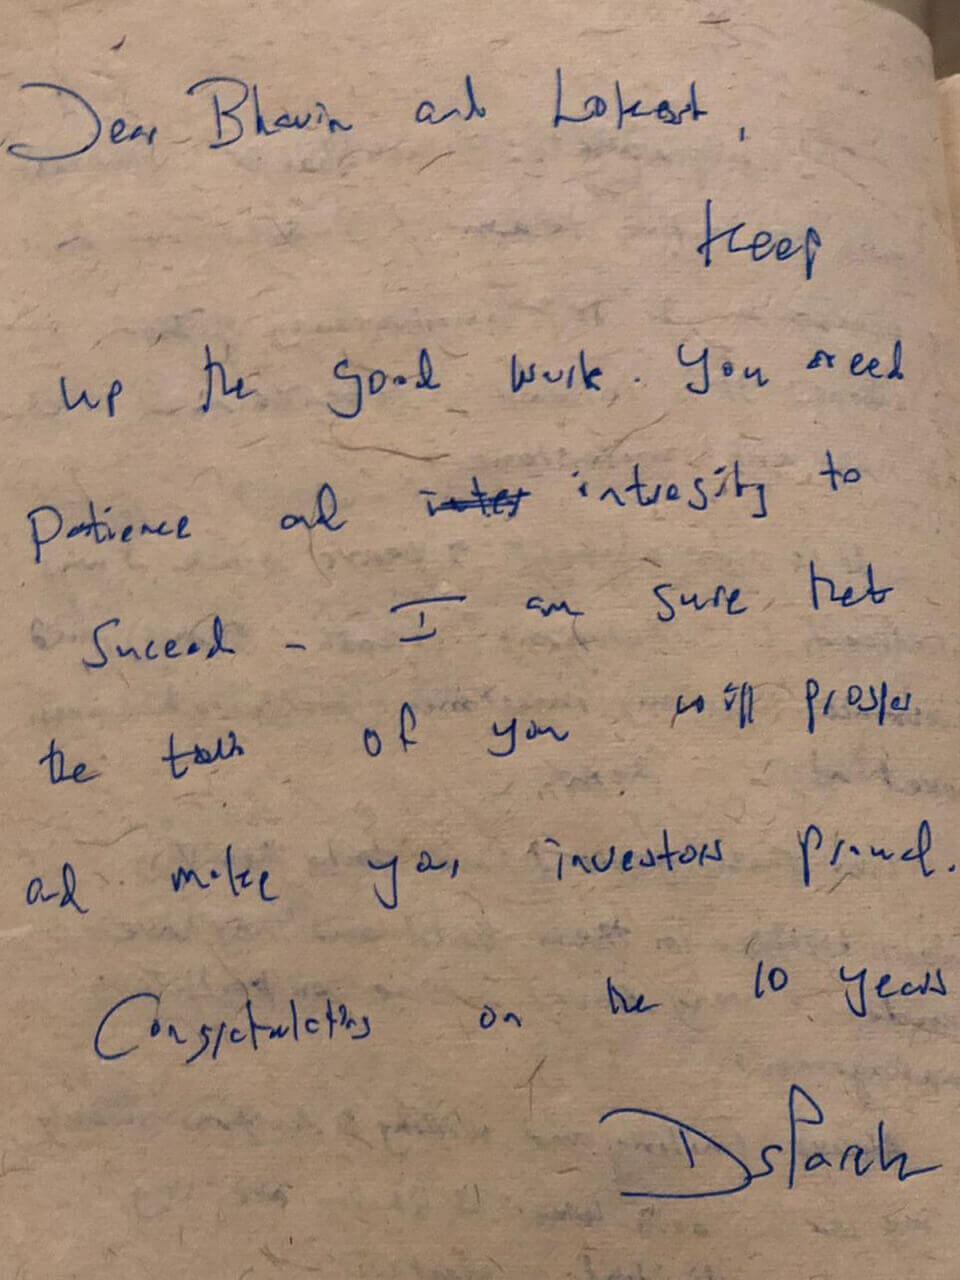 Dear Bhavin and Lokesh,
Keep
up the good work. You need
Patience ad introsity to
Suceed - I am sure that
the of you will prosper
ad make you, investors proud.
Congratulations on the 10 years
DsParekh